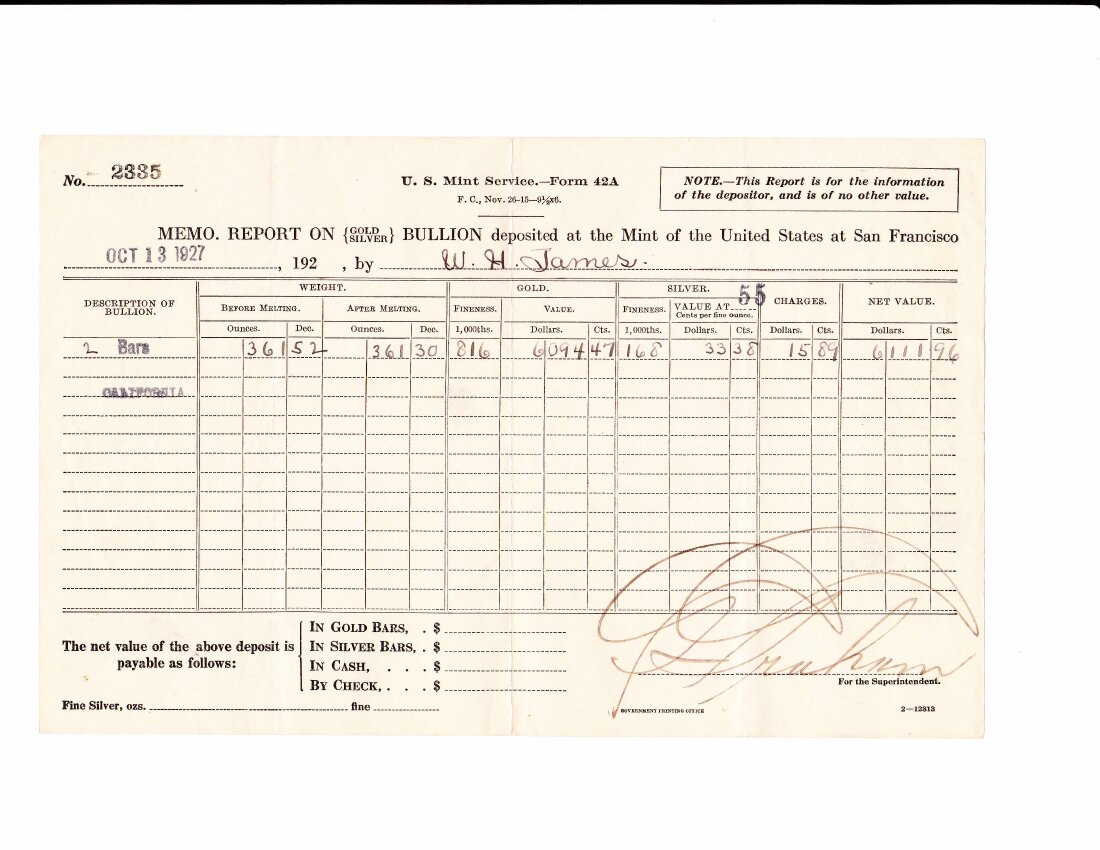 No. 2335
U. S. Mint Service.—Form 42A
F. C., Nov. 26-15—9½x6.
NOTE.—This Report is for the information
of the depositor, and is of no other value.
MEMO. REPORT ON {GOLD SILVER} BULLION deposited at the Mint of the United States at San Francisco
OCT 13 1927, 192 , by W. H. James.
DESCRIPTION OF BULLION. WEIGHT. GOLD. SILVER. CHARGES. NET VALUE.
BEFORE MELTING. AFTER MELTING. FINENESS. VALUE. FINENESS. VALUE AT 55 Cents per fine ounce.
Ounces. Dec. Ounces. Dec. 1,000ths. Dollars. Cts. 1,000ths. Dollars. Cts. Dollars. Cts. Dollars. Cts.
2 Bars 361 52 361 30 816 6094 47 168 33 38 15 89 6111 96
CALIFORNIA
The net value of the above deposit is
payable as follows:
IN GOLD BARS, . $
IN SILVER BARS, . $
IN CASH, . . . $
BY CHECK, . . . $
Graham
For the Superintendent.
Fine Silver, ozs. fine
GOVERNMENT PRINTING OFFICE
2—12813